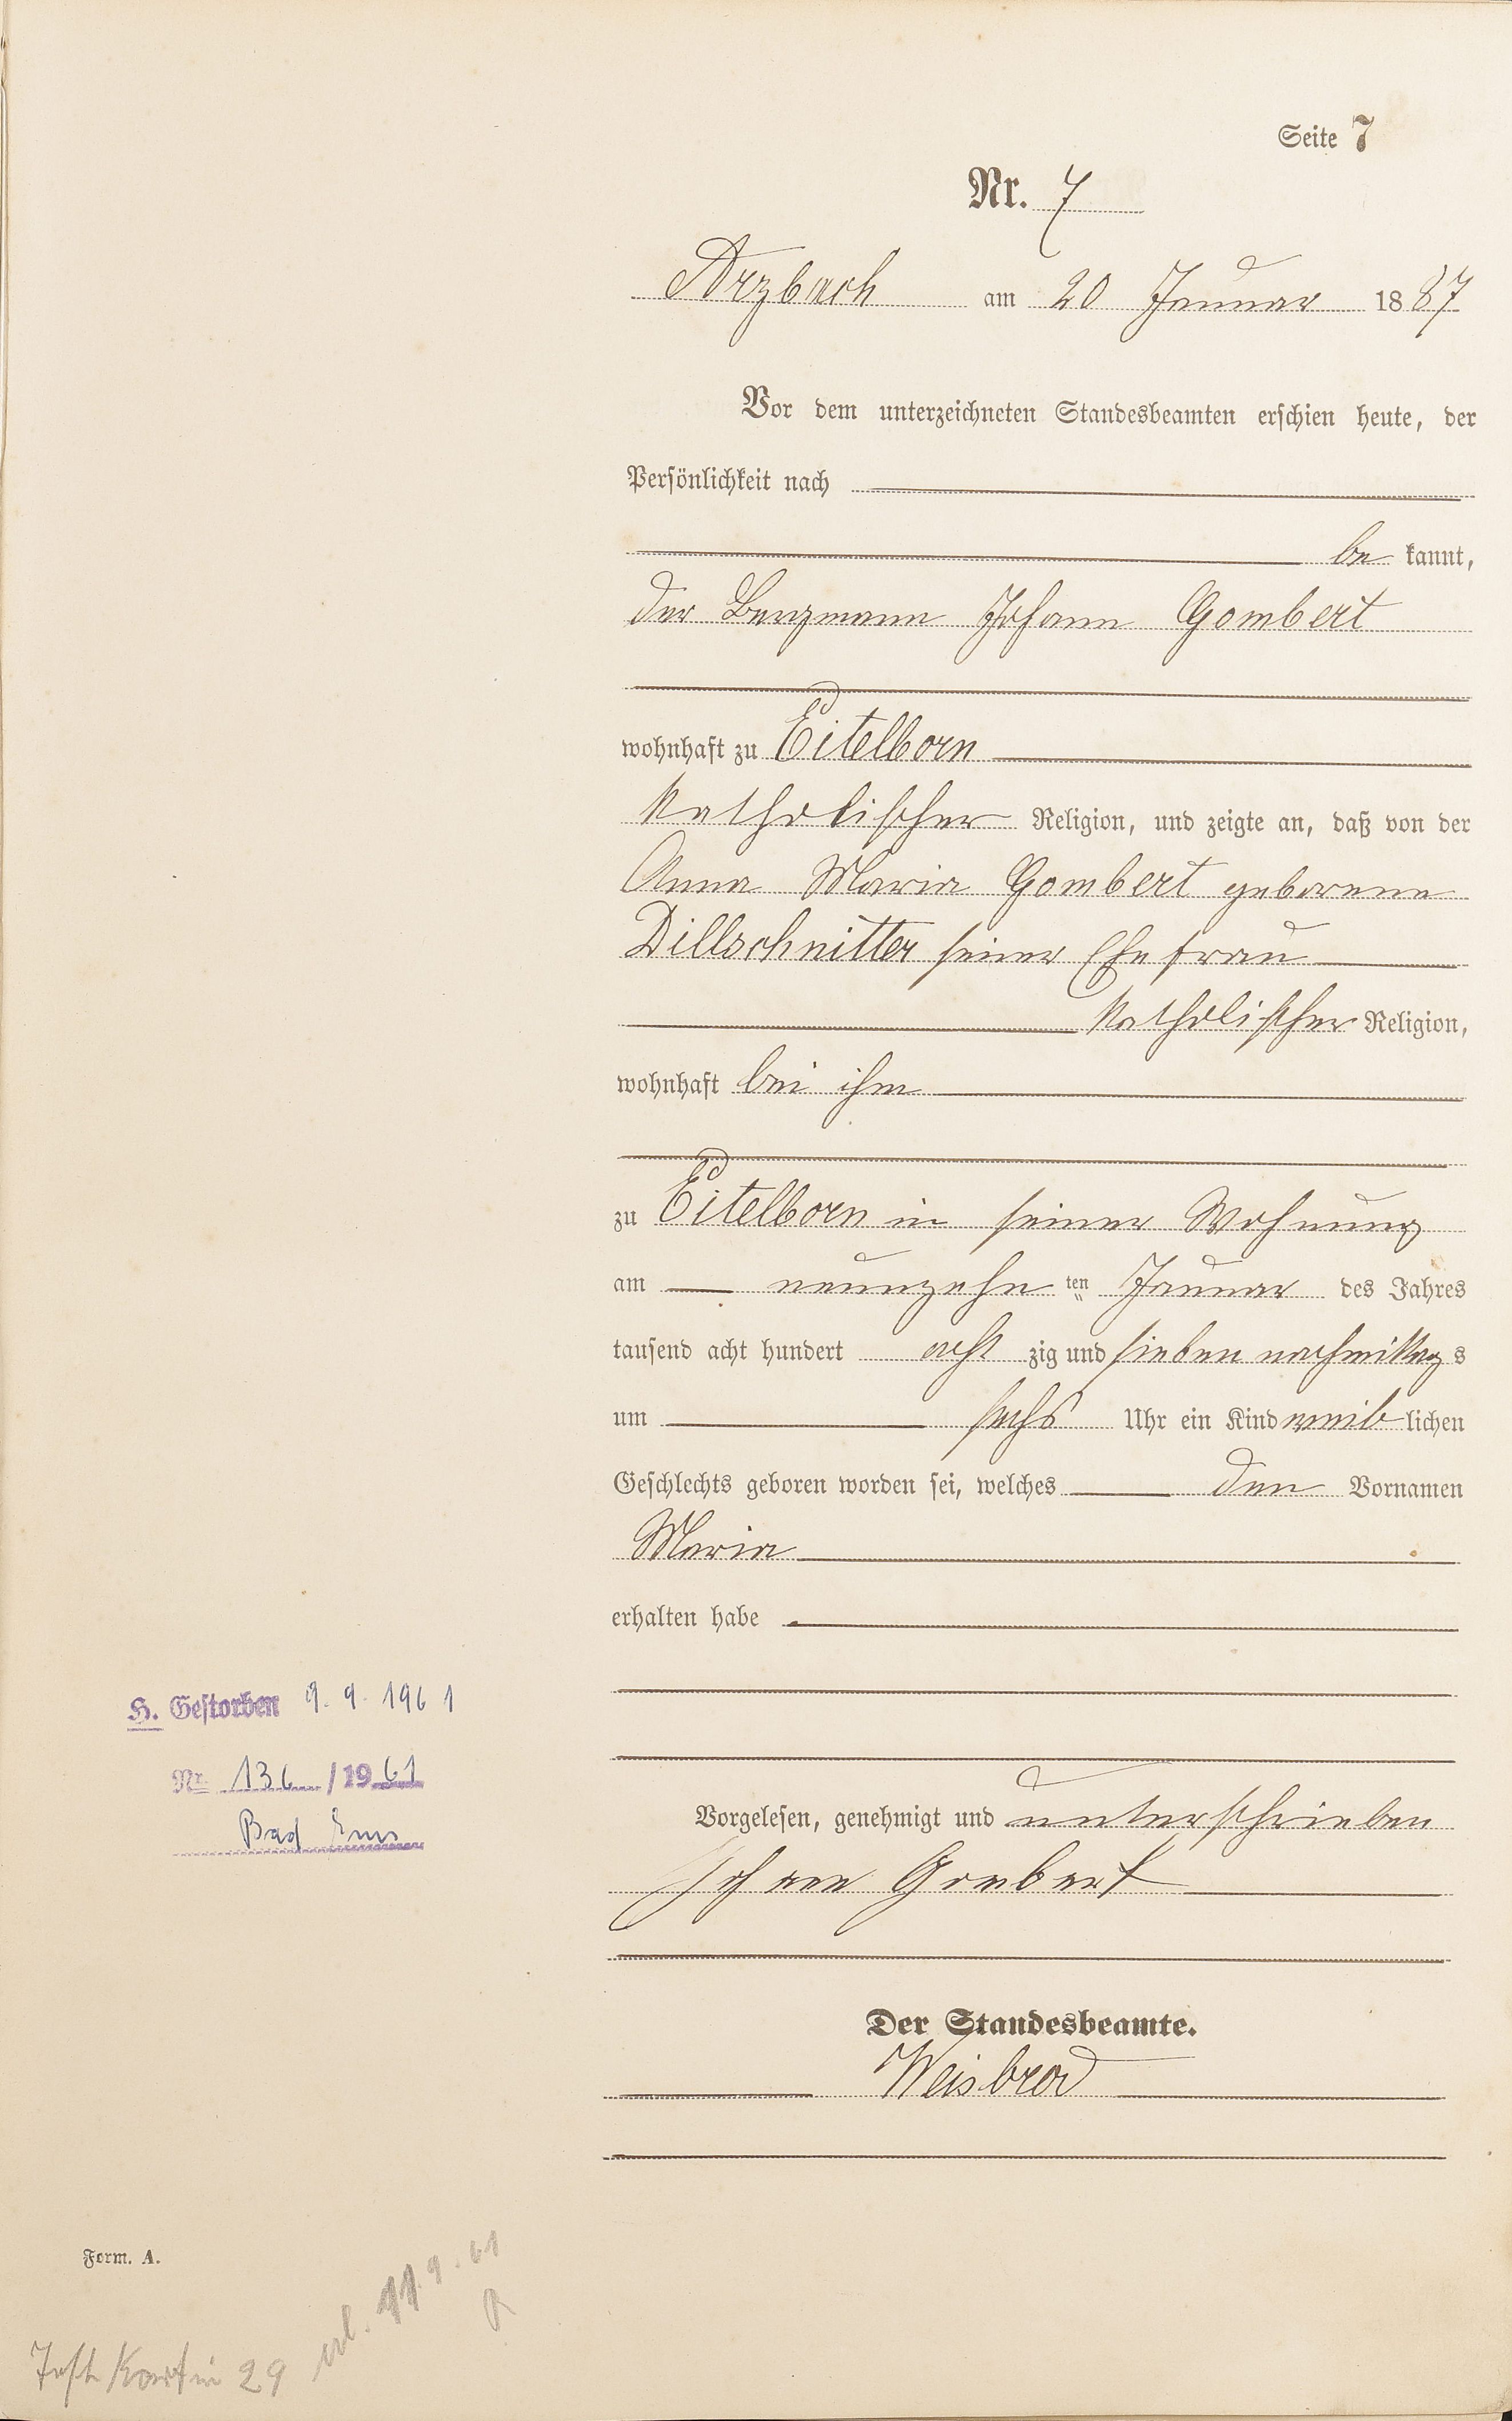 Seite 7
Nr. 7
Arzbach am 20 Januar 1887
Vor dem unterzeichneten Standesbeamten erschien heute, der
Persönlichkeit nach
be kannt,
der Bergmann Johann Gombert
wohnhaft zu Eitelborn
katholischer Religion, und zeigte an, daß von der
Anna Maria Gombert geborene
Dillschnitter seiner Ehefrau
katholischer Religion,
wohnhaft bei ihm
zu Eitelborn in seiner Wohnung
am neunzehn ten Januar des Jahres
tausend acht hundert acht zig und sieben nachmittag s
um sechs Uhr ein Kind weib lichen
Geschlechts geboren worden sei, welches den Vornamen
Maria
erhalten habe
H. Gestorben 9. 9. 1961
Nr. 136 /1961
Bad Ems
Vorgelesen, genehmigt und unterschrieben
Johann Gombert
Der Standesbeamte.
Weisbrod
Form. A.
erl. 11.9.61
29